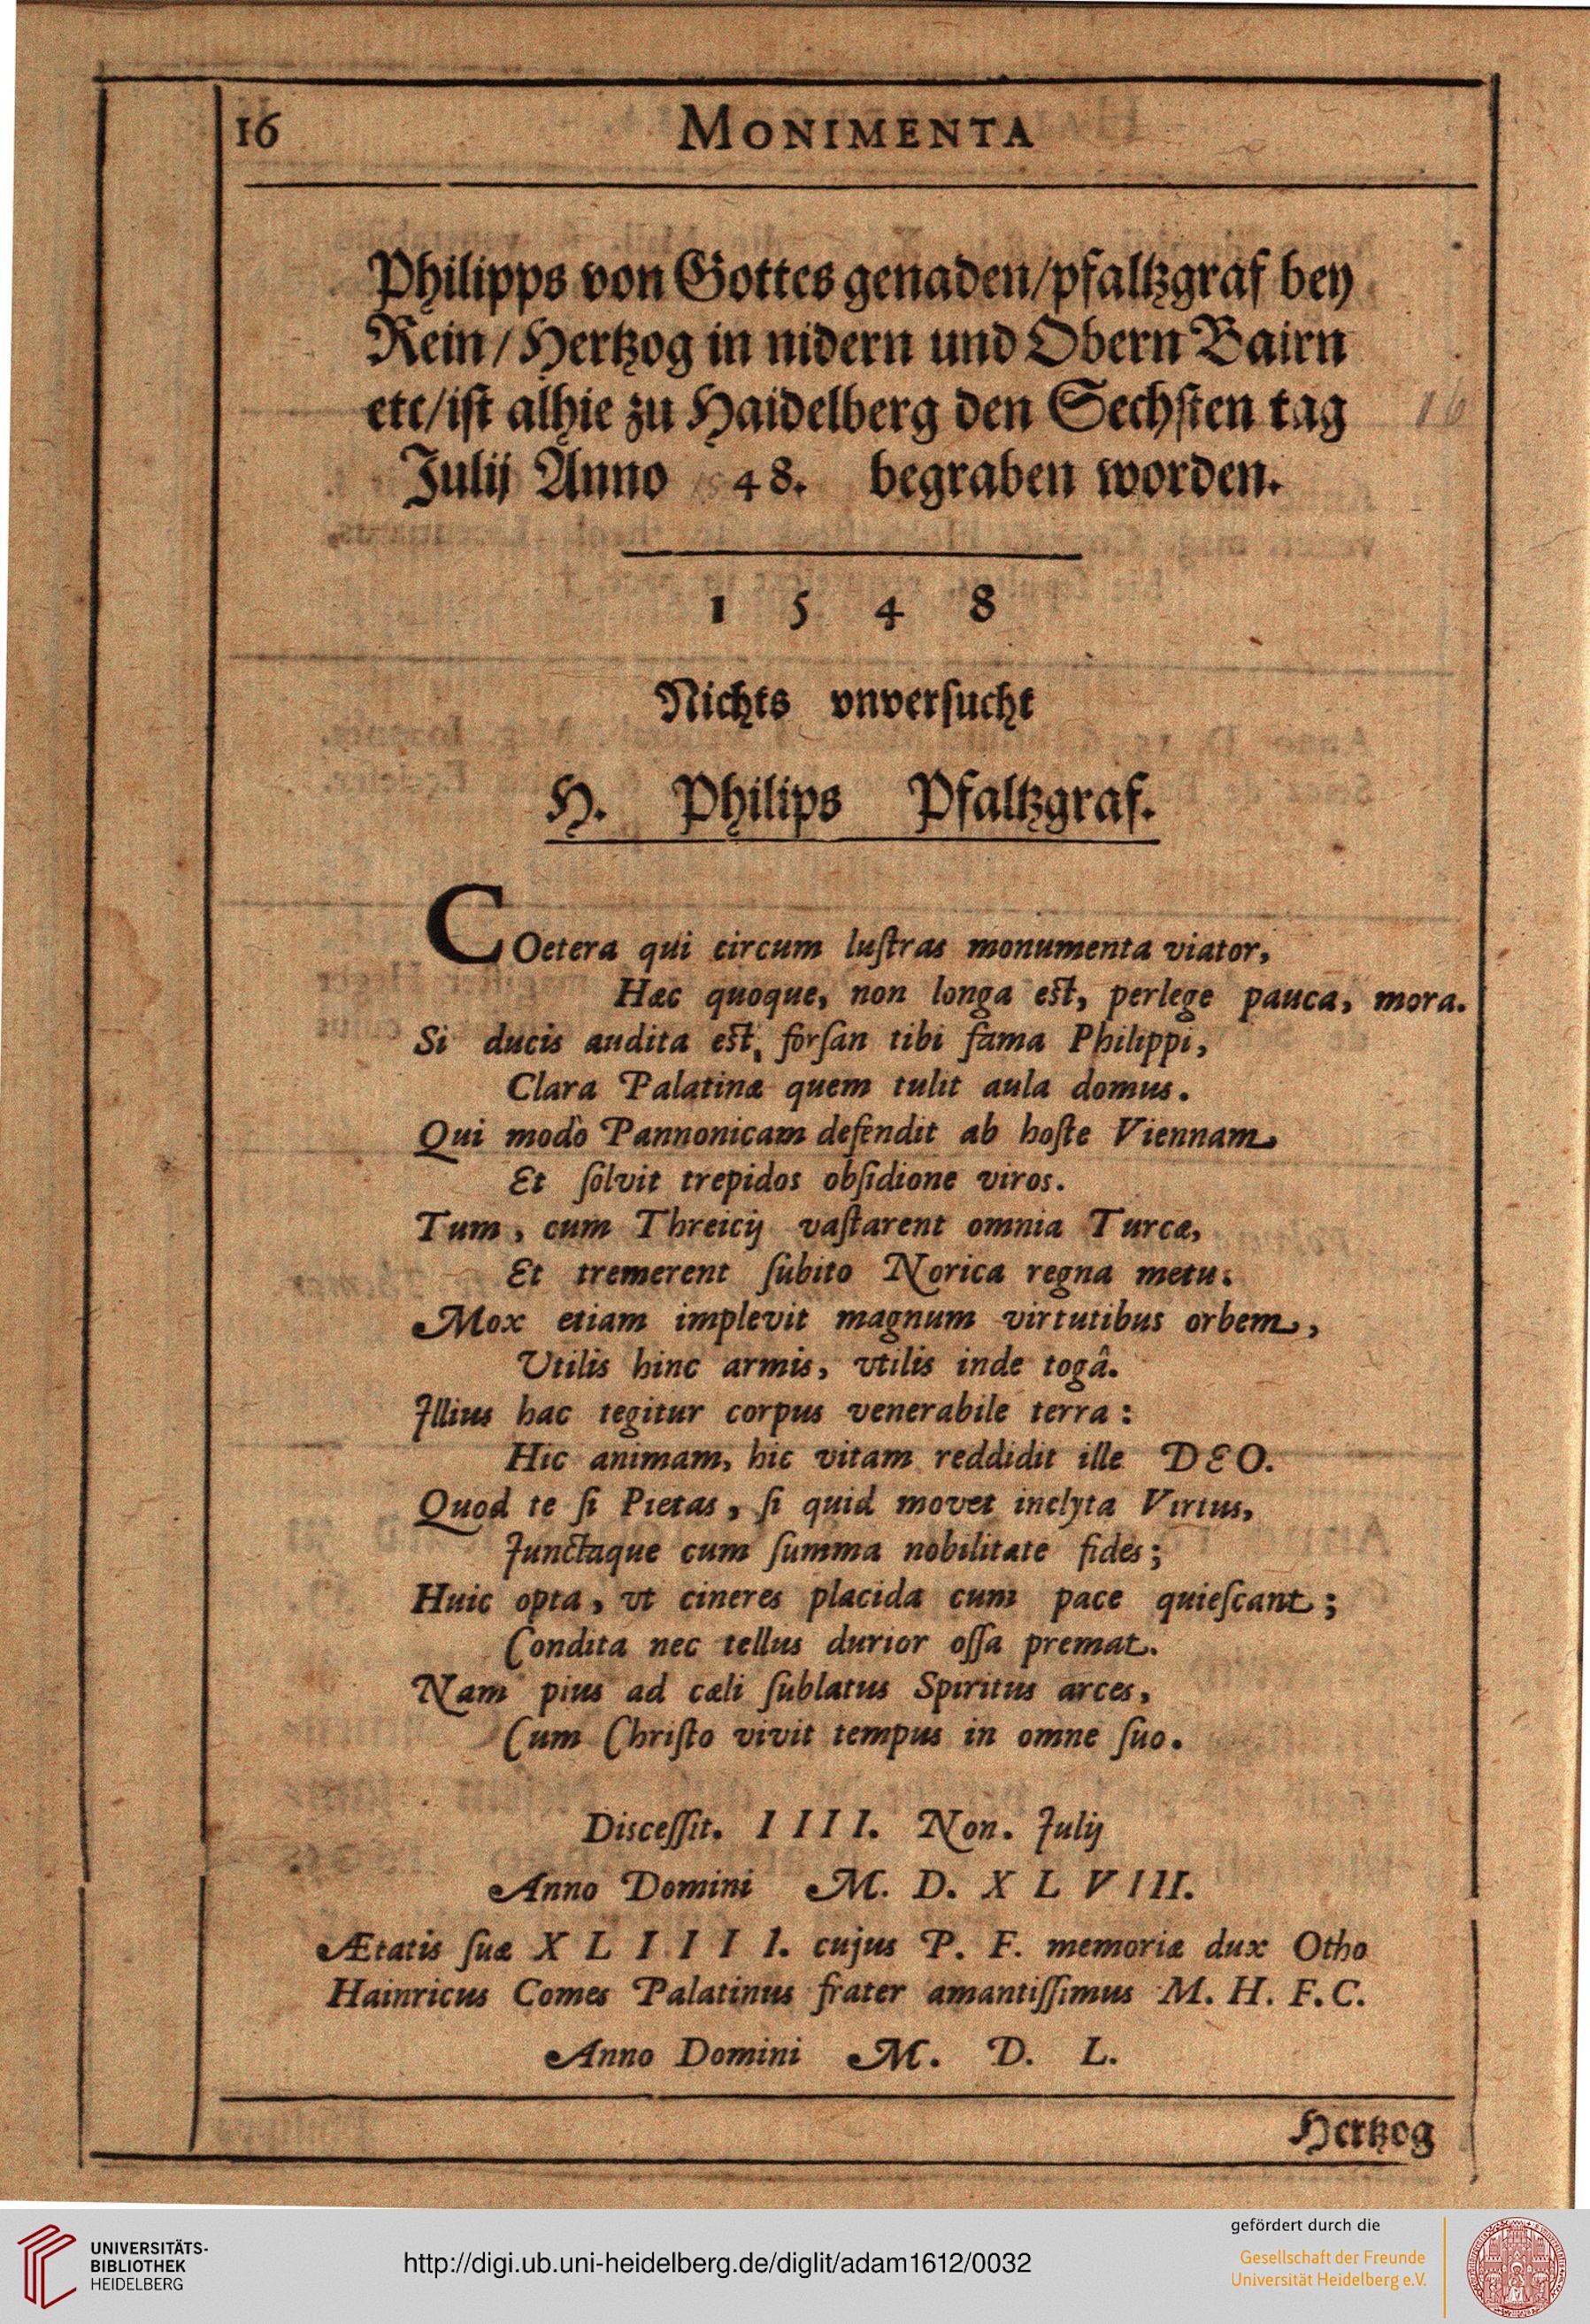 16 MONIMENTA
Philipps von Gottes genaden/pfaltzgraf bey
Rein/Hertzog in nidern und Obern Bairn
etc/ist alhie zu Haidelberg den Sechsten tag
Julij Anno 48. begraben worden.
16
1 5 4 8
Nichts vnversucht
H. Philips Pfaltzgraf.
COetera qui circum lustras monumenta viator,
Hæc quoque, non longa est, perlege pauca, mora.
Si ducis audita est, forsan tibi fama Philippi,
Clara Palatinæ quem tulit aula domus.
Qui modò Pannonicam defendit ab hoste Viennam,
Et solvit trepidos obsidione viros.
Tum, cum Threicij vastarent omnia Turcæ,
Et tremerent subito Norica regna metu.
Mox etiam implevit magnum virtutibus orbem,
Utilis hinc armis, vtilis inde togâ.
Illius hac tegitur corpus venerabile terra:
Hic animam, hic vitam reddidit ille DEO.
Quod te si Pietas, si quid movet inclyta Virtus,
Junctaque cum summa nobilitate fides;
Huic opta, vt cineres placida cum pace quiescant;
Condita nec tellus durior ossa premat.
Nam pius ad cæli sublatus Spiritus arces,
Cum Christo vivit tempus in omne suo.
Discessit. IIII. Non. Julij
Anno Domini M. D. XLVIII.
Ætatis suæ XLIIII. cujus P. F. memoriæ dux Otho
Hainricus Comes Palatinus frater amantissimus M. H. F. C.
Anno Domini M. D. L.
Hertzog
UNIVERSITÄTS-
BIBLIOTHEK
HEIDELBERG
http://digi.ub.uni-heidelberg.de/diglit/adam1612/0032
gefördert durch die
Gesellschaft der Freunde
Universität Heidelberg e.V.